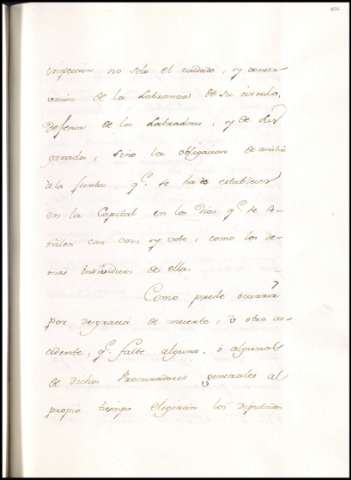 inspeccion no solo el cuidado, y conser-
vacion de la Labranza de su circulo,
defensa de los Labradores, y de sus
ganados, sino la obligacion de asistir
á la Junta, q.e se ha de establecer
en la Capital en los dias q.e se se-
ñalen con voz, y voto, como los de-
mas individuos de ella.
Como puede ocurrir
por desgracia de muerte, ú otro ac-
cidente, q.e falte alguno, ó algunos
de dichos Procuradores generales al
propio tiempo elegirán los Diputados